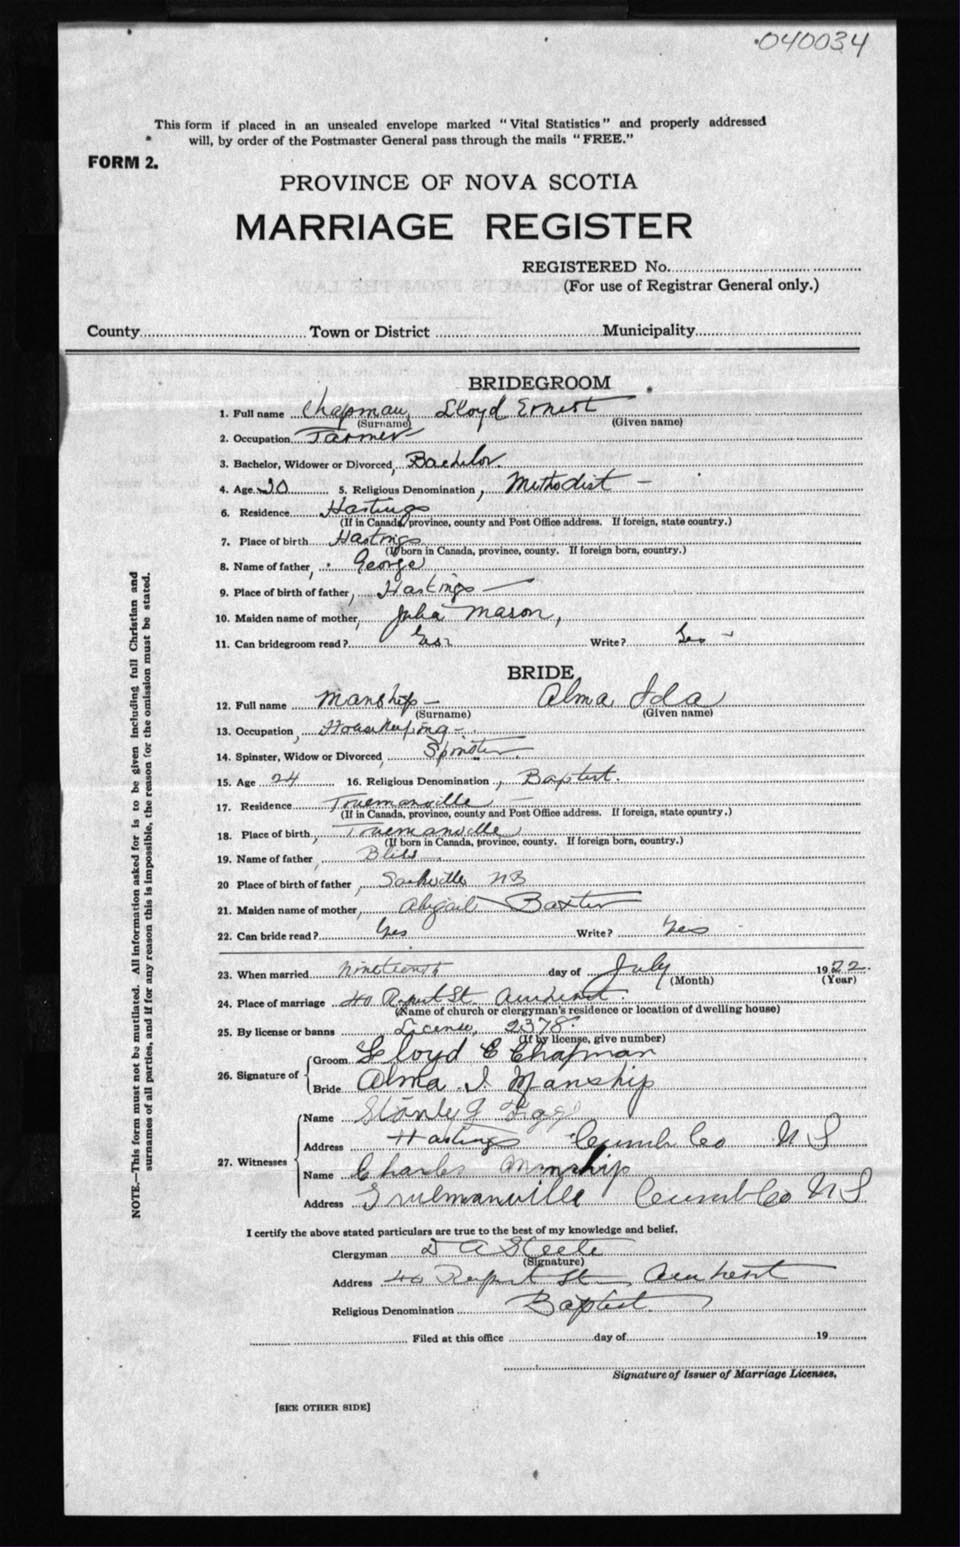 040034
This form if placed in an unsealed envelope marked "Vital Statistics" and properly addressed
will, by order of the Postmaster General pass through the mails "FREE."
FORM 2.
PROVINCE OF NOVA SCOTIA
MARRIAGE REGISTER
REGISTERED No.
(For use of Registrar General only.)
County Town or District Municipality
BRIDEGROOM
1. Full name Chapman, Lloyd Ernest
(Surname) (Given name)
2. Occupation Farmer
3. Bachelor, Widower or Divorced, Bachelor.
4. Age 20 5. Religious Denomination, Methodist -
6. Residence Hastings
(If in Canada, province, county and Post Office address. If foreign, state country.)
7. Place of birth Hastings
(If born in Canada, province, county. If foreign born, country.)
8. Name of father, George
9. Place of birth of father, Hastings
10. Maiden name of mother, Julia Mason,
11. Can bridegroom read? Yes Write? Yes -
BRIDE
12. Full name Manship - Alma Ida
(Surname) (Given name)
13. Occupation, Housekeeping -
14. Spinster, Widow or Divorced, Spinster
15. Age 24 16. Religious Denomination, Baptist.
17. Residence Truemanville -
(If in Canada, province, county and Post Office address. If foreign, state country.)
18. Place of birth, Truemanville
(If born in Canada, province, county. If foreign born, country.)
19. Name of father, Bliss
20 Place of birth of father, Sackville NB
21. Maiden name of mother, Abigail Baxter
22. Can bride read? Yes Write? Yes
23. When married nineteenth day of July 1922.
(Month) (Year)
24. Place of marriage 40 Rupert St Amherst.
(Name of church or clergyman's residence or location of dwelling house)
25. By license or banns License, 2378.
(If by license, give number)
26. Signature of
Groom Lloyd E Chapman
Bride Alma I Manship
27. Witnesses
Name Stanly
Address Hastings Cumb Co N S
Name Charles Manship
Address Truemanville Cumb Co N S
I certify the above stated particulars are true to the best of my knowledge and belief.
Clergyman D A Steele
(Signature)
Address 40 Rupert St Amherst
Religious Denomination Baptist
Filed at this office day of 19
Signature of Issuer of Marriage Licenses.
[SEE OTHER SIDE]
NOTE.—This form must not be mutilated. All information asked for is to be given including full Christian and
surnames of all parties, and if for any reason this is impossible, the reason for the omission must be stated.